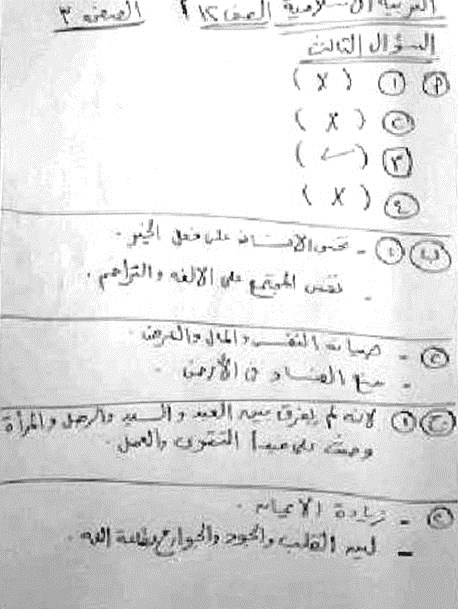 التربية الاسلامية الصف ١٢ الصفحه ٣
السؤال الثالث
أ ١ ( X )
٢ ( X )
٣ ( ✓ )
٤ ( X )
ب ١ - تحث الانسان على فعل الخير .
- المجتمع على الالفه والتراحم .
٢ - صيانه النفس والمال والعرض .
- منع الفساد في الأرض .
ج ١ لانه لم يفرق بين العبد و السيد والرجل والمرأة
وحث على مبدأ التقوى والعمل .
٢ - زيادة الايمان .
- لين القلب والجلود والجوارح الله .